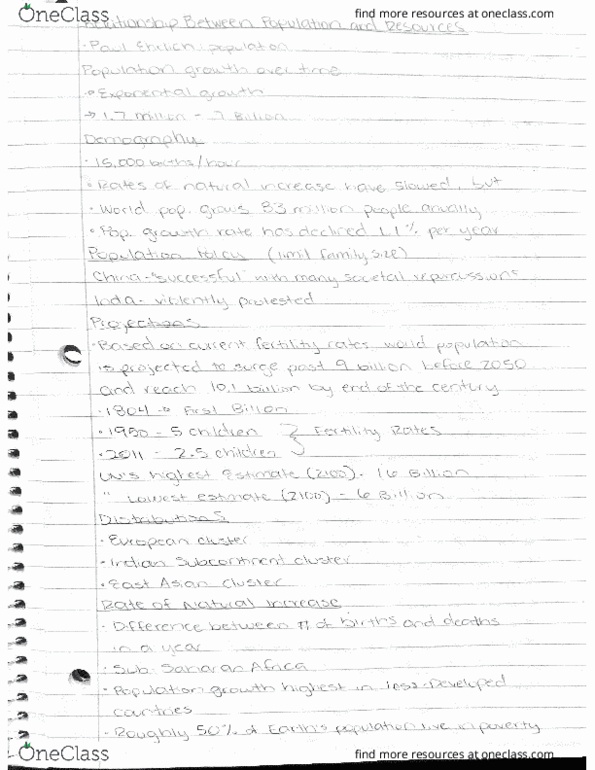 OneClass find more resources at oneclass.com
Relationship Between Population and Resources
· Paul Ehrlich: population
Population growth over time
· Exponential growth
→ 1.7 million - 7 Billion
Demography
· 15,000 births/hour
· Rates of natural increase have slowed, but
· World pop. grows 83 million people anually
· Pop. growth rate has declined 1.1% per year
Population Policy (limit family size)
China - "successful" with many societal repercussions
India - violently protested
Projections
· Based on current fertility rates, world population
is projected to surge past 9 billion before 2050
and reach 10.1 billion by end of the century
· 1804 → First Billion
· 1950 - 5 children } Fertility Rates
· 2011 - 2.5 children
UN's highest Estimate (2100) - 16 Billion
" Lowest estimate (2100) - 6 Billion
Distributions
· European cluster
· Indian Subcontinent cluster
· East Asian Cluster
Rate of Natural Increase
· Difference between # of births and deaths
in a year
· Sub-Saharan Africa
· Population growth highest in less-developed
countries
· Roughly 50% of Earth's population live in poverty
OneClass find more resources at oneclass.com